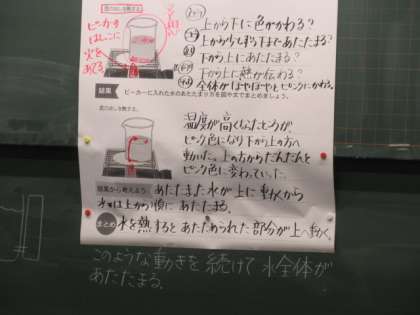 底の少しを熱する。
ビーカーの
はしっこに
火を
あてる
上から下に色がかわる?
上から少しずつ下まであたたまる?
下から上にあたたまる?
下から上に熱が伝わる?
全体がほやほやとピンクにかわる。
結果
ビーカーに入れた水のあたたまり方を図や文でまとめましょう。
底の少しを熱する。
温度が高くなったところが、
ピンク色になり下から上の方へ
動いた。上の方からだんだんと
ピンク色に変わっていった。
結果から考えよう
あたたまった水が上に動くから
水は上から順にあたたまる。
まとめ
水を熱するとあたためられた部分が上へ動く。
このような動きを続けて水全体が
あたたまる。